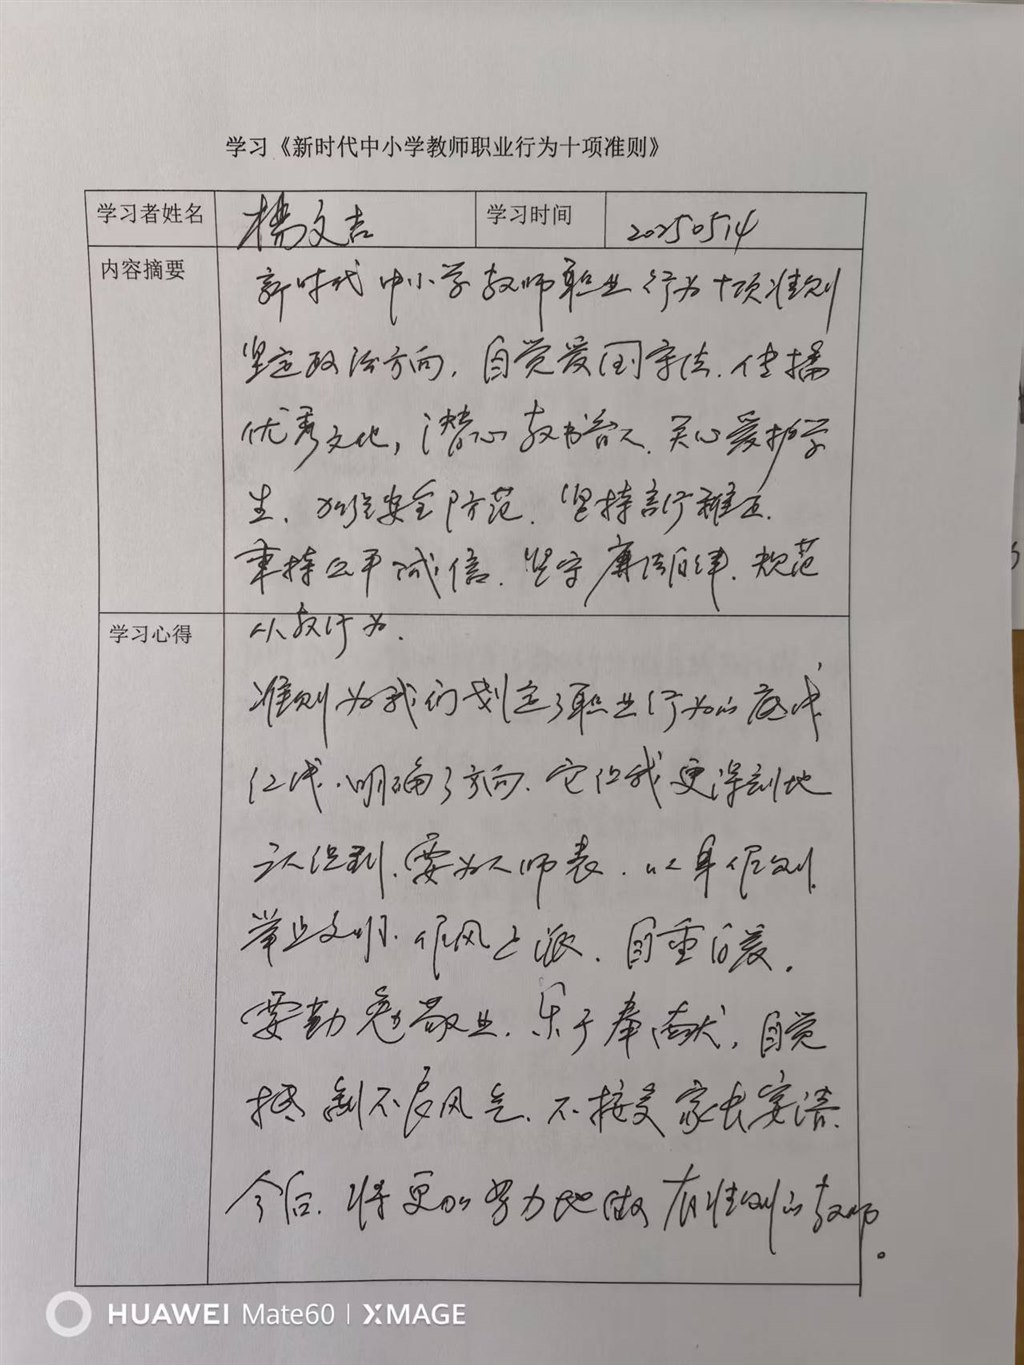 学习《新时代中小学教师职业行为十项准则》
学习者姓名 杨文吉 学习时间 20250514
内容摘要
新时代中小学教师职业行为十项准则
坚定政治方向，自觉爱国守法、传播
优秀文化，潜心教书育人、关心爱护学
生、加强安全防范、坚持言行雅正、
秉持公平诚信、坚守廉洁自律、规范
从教行为.
学习心得
准则为我们划定了职业行为的底线
红线、明确了方向、它让我更深刻地
认识到、要为人师表、以身作则、
举止文明、作风正派、自重自爱。
要勤勉敬业、乐于奉献，自觉
抵制不良风气、不接受家长宴请、
今后、将更加努力地做有准则的教师。
HUAWEI Mate60 | XMAGE